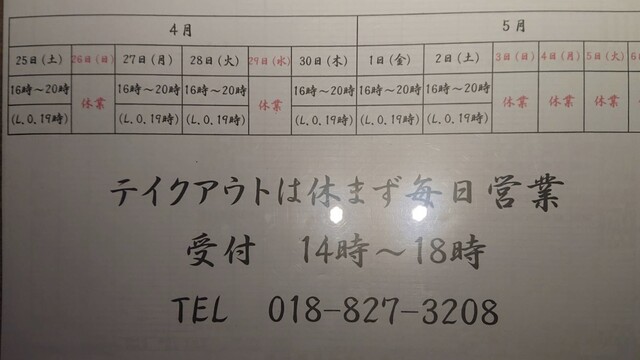 4月 5月
25日(土) 26日(日) 27日(月) 28日(火) 29日(水) 30日(木) 1日(金) 2日(土) 3日(日) 4日(月) 5日(火) 6
16時～20時 休業 16時～20時 16時～20時 休業 16時～20時 16時～20時 16時～20時 休業 休業 休業
(L.O.19時) (L.O.19時) (L.O.19時) (L.O.19時) (L.O.19時) (L.O.19時)
テイクアウトは休まず毎日営業
受付 14時～18時
TEL 018-827-3208